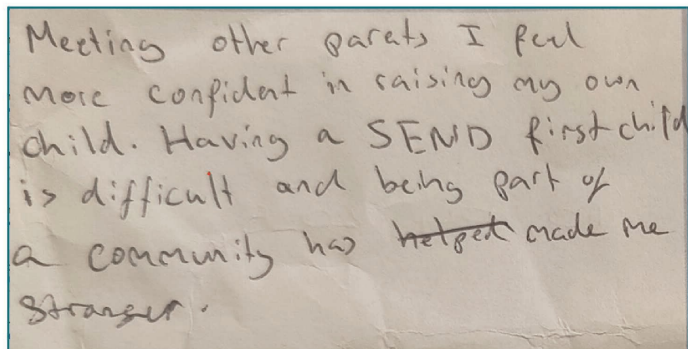 Meeting other parets I feel
more confident in raising my own
child. Having a SEND first child
is difficult and being part of
a community has helped made me
stronger.